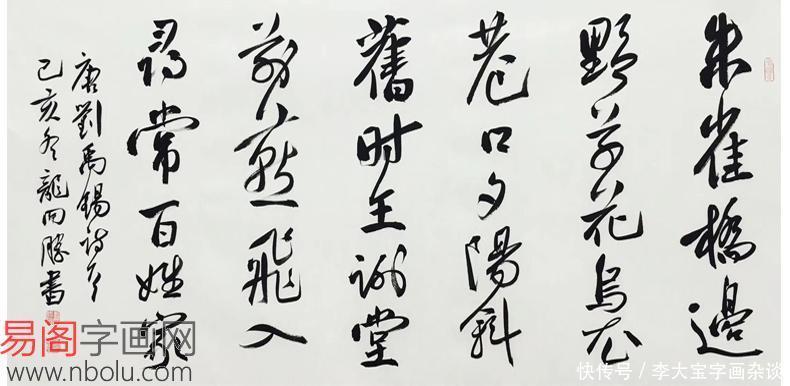 朱雀橋邊
野草花烏衣
巷口夕陽斜
舊时王謝堂
前燕飛入
尋常百姓家
唐劉禹錫詩
己亥冬龍開勝書
易阁字画网
www.nbolu.com
快传号/李大宝字画杂谈